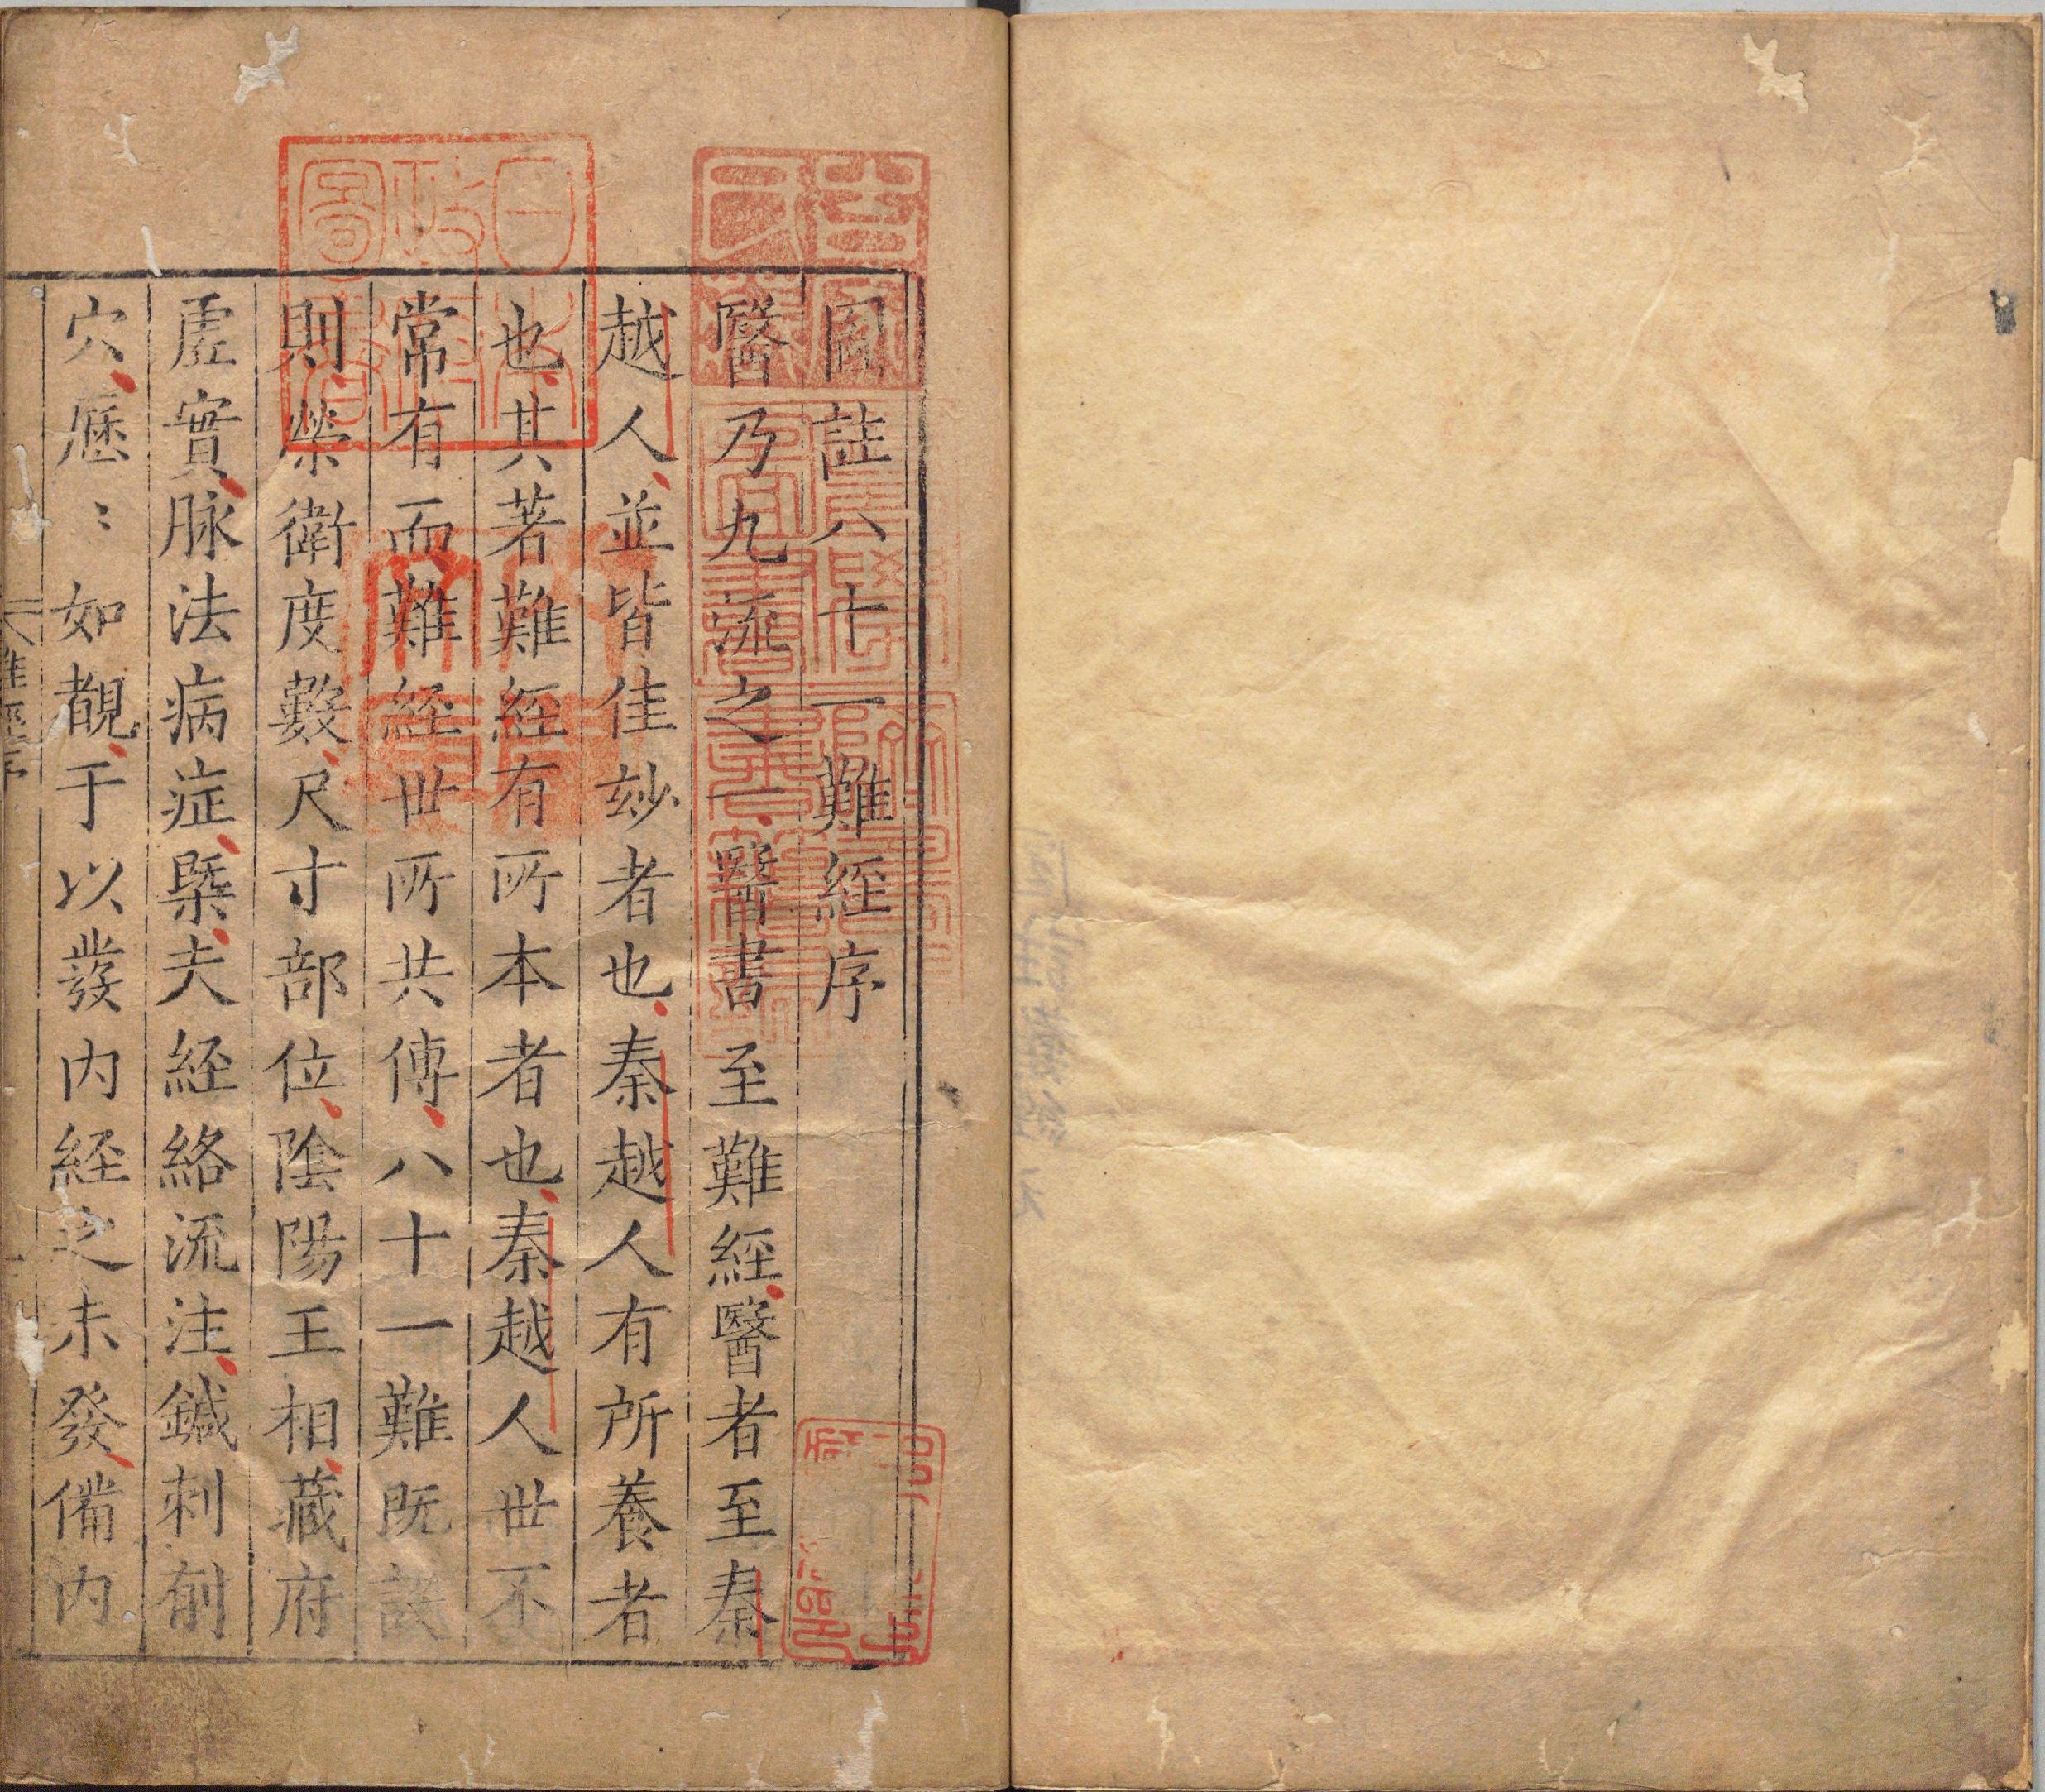 圖註八十一難經序
醫乃九流之一醫書至難經醫者至秦
越人並皆佳玅者也秦越人有所養者
也其著難經有所本者也秦越人世不
常有而難経世所共傳八十一難既設
則榮衛度數尺寸部位陰陽王相藏府
虛實脉法病症槩夫経絡流注鍼刺俞
穴歷〻如覩于以發内経之未發備内